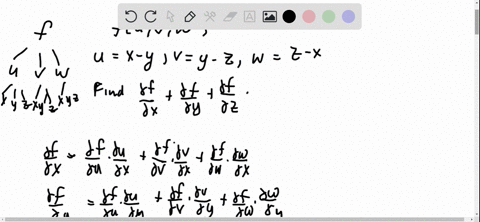 f
u = x-y , v = y-z , w = z-x
u v w
x y z x y z x y z
Find ∂f/∂x + ∂f/∂y + ∂f/∂z .
∂f/∂x = ∂f/∂u · ∂u/∂x + ∂f/∂v · ∂v/∂x + ∂f/∂w · ∂w/∂x
= ∂f/∂u · ∂u/∂y + ∂f/∂v · ∂v/∂y + ∂f/∂w · ∂w/∂y